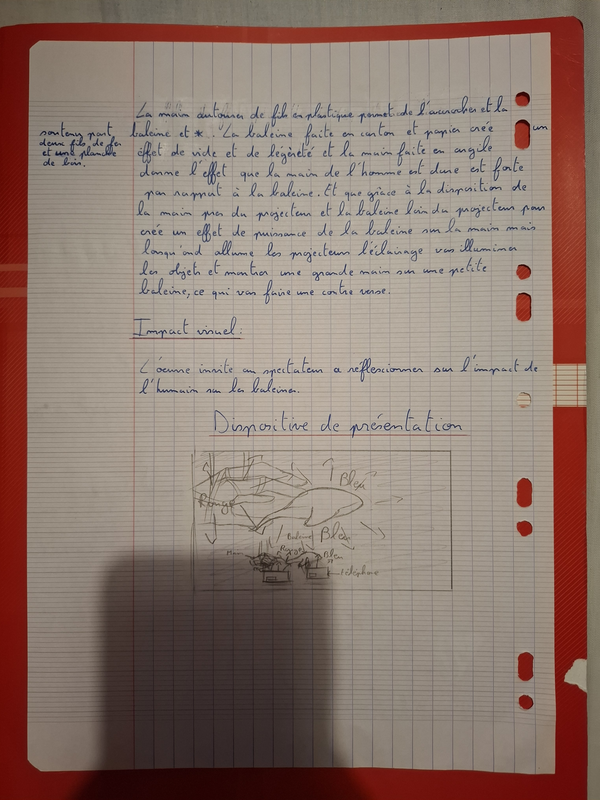 La main autourer de fils en plastique permet de l'accrocher et la
soutenu part
deux fils de fer
et une planche
de bois.
baleine et *. La baleine faite en carton et papier créé un
effet de vide et de légèreté et la main faite en argile
donne l'effet que la main de l'homme est dure est forte
par rapport à la baleine. Et que grâce à la disposition de
la main pres du projecteur et la baleine loin du projecteur pour
créé un effet de puissance de la baleine sur la main mais
lorsqu'ond allume les projecteurs l'éclairage vas illuminer
les objets et montrer une grande main sur une petite
baleine, ce qui vas faire une contre verse.
Impact visuel:
L'oeuvre invite au spectateur a réflessionner sur l'impact de
l'humain sur les baleines.
Dispositive de présentation
Bleu
Rouge
Baleine
Bleu
Main
Rouge
Bleu
téléphone